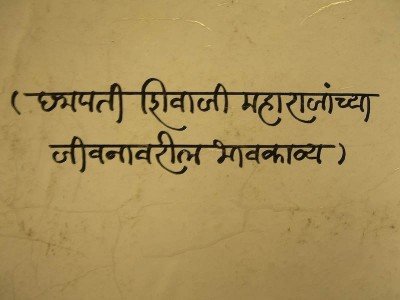 ( छत्रपती शिवाजी महाराजांच्या
जीवनावरील भावकाव्य )